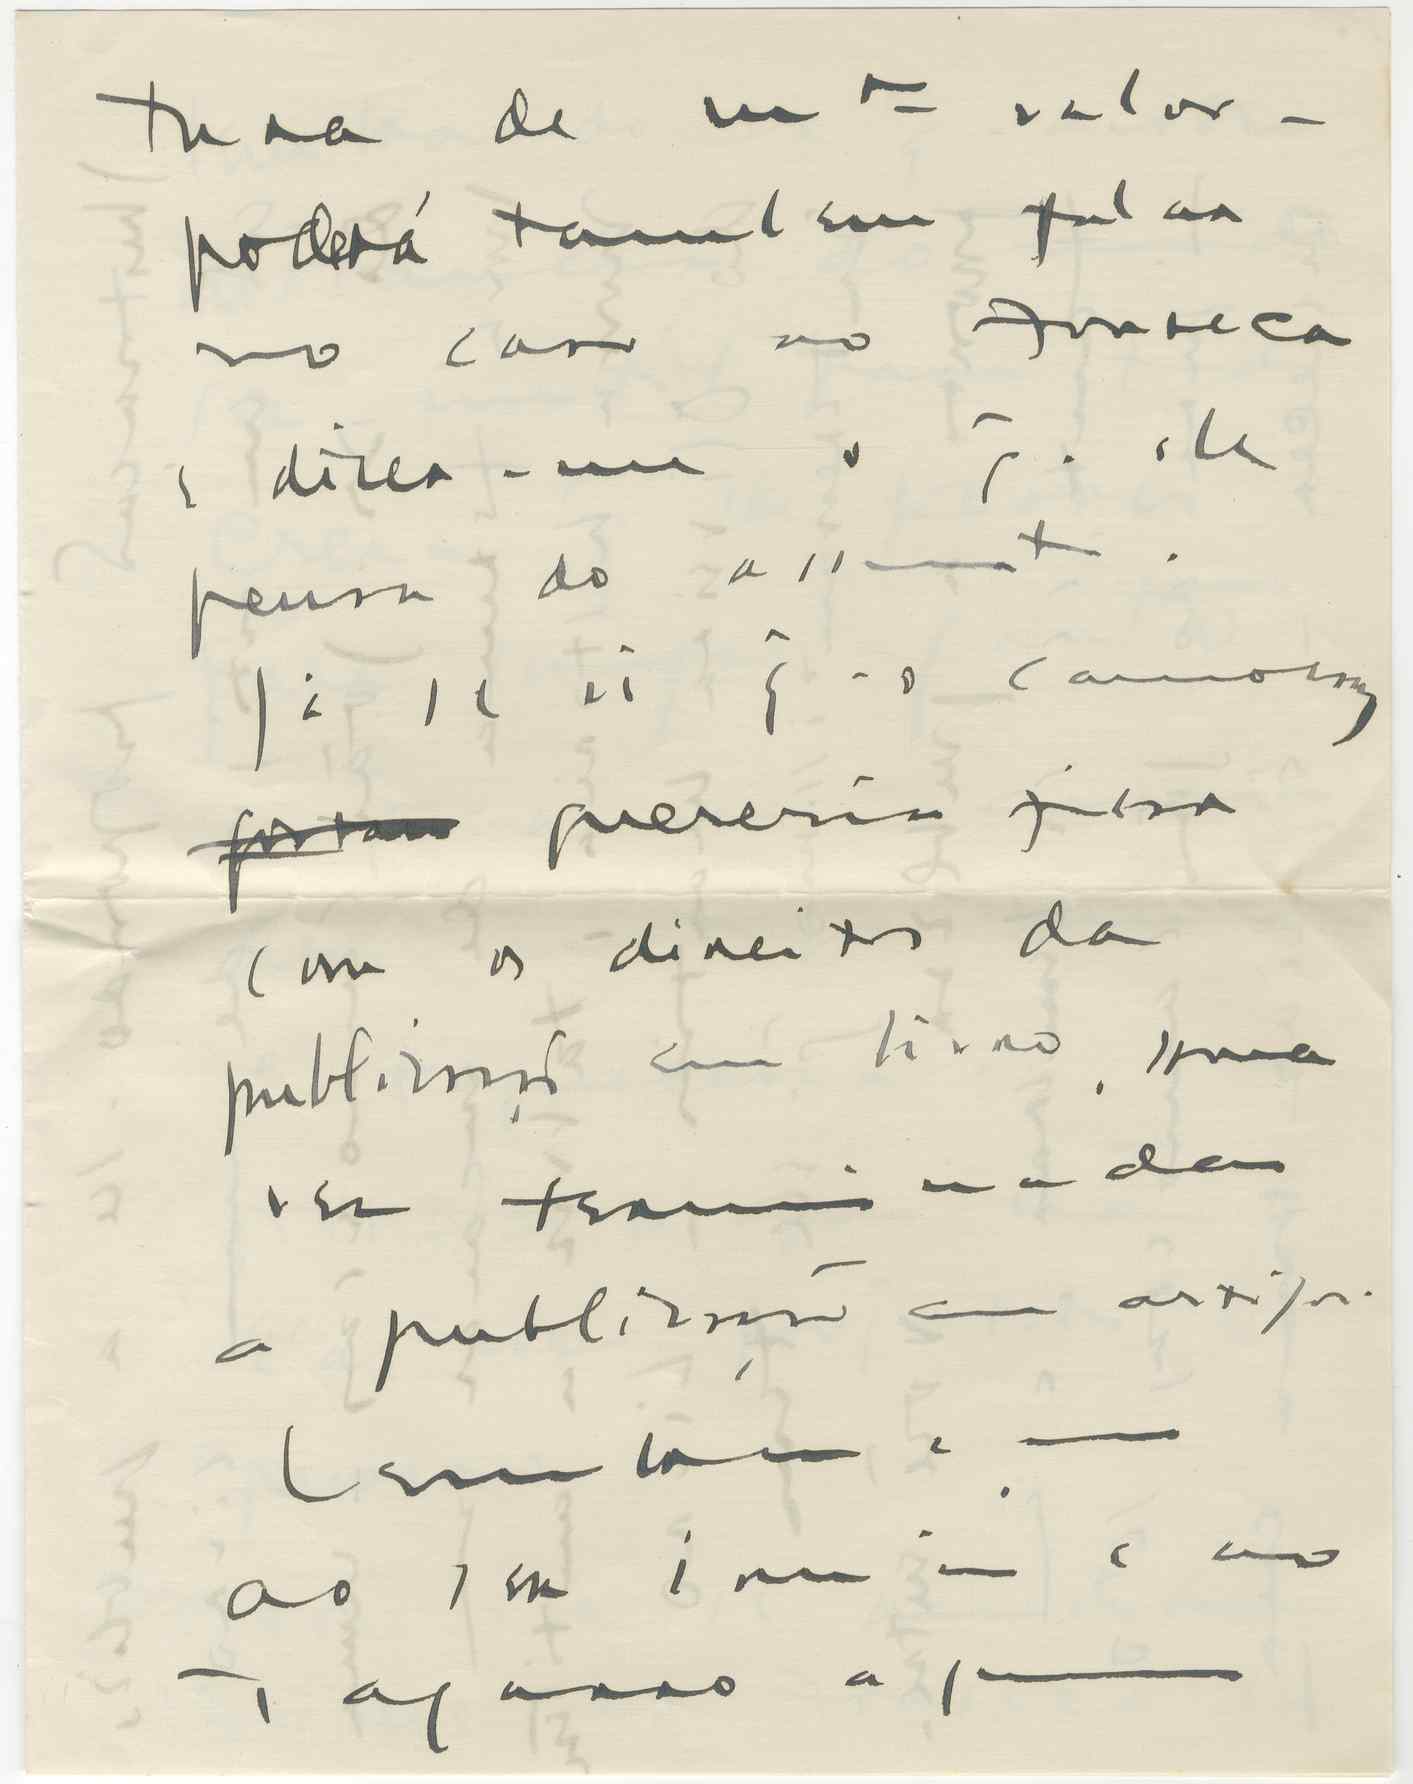 tura de mto valor –
poderá tambem falar
no caso ao Fonseca
e dizer-me o q. ele
pensa do assunto.
Já se vê q o
quereria ficar
com os direitos da
publicação em livro, uma
vez terminada
a publicação em artigos.
Lembranças
ao seu irmão e ao